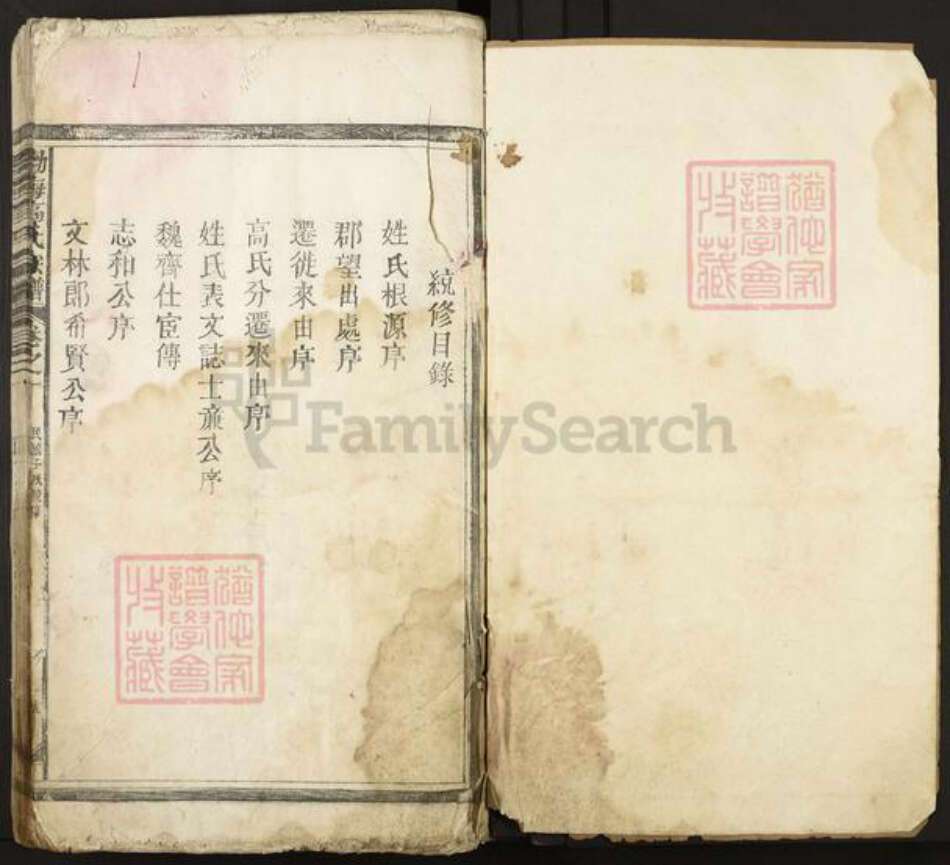 統修目錄
姓氏根源序
郡望出處序
遷徙來由序
高氏分遷來由序
姓氏表文誌士廉公序
魏齊仕宦傳
志和公序
文林郎希賢公序
勃海高氏族譜
卷之一
FamilySearch
猶他家
譜學會
收藏
猶他家
譜學會
收藏